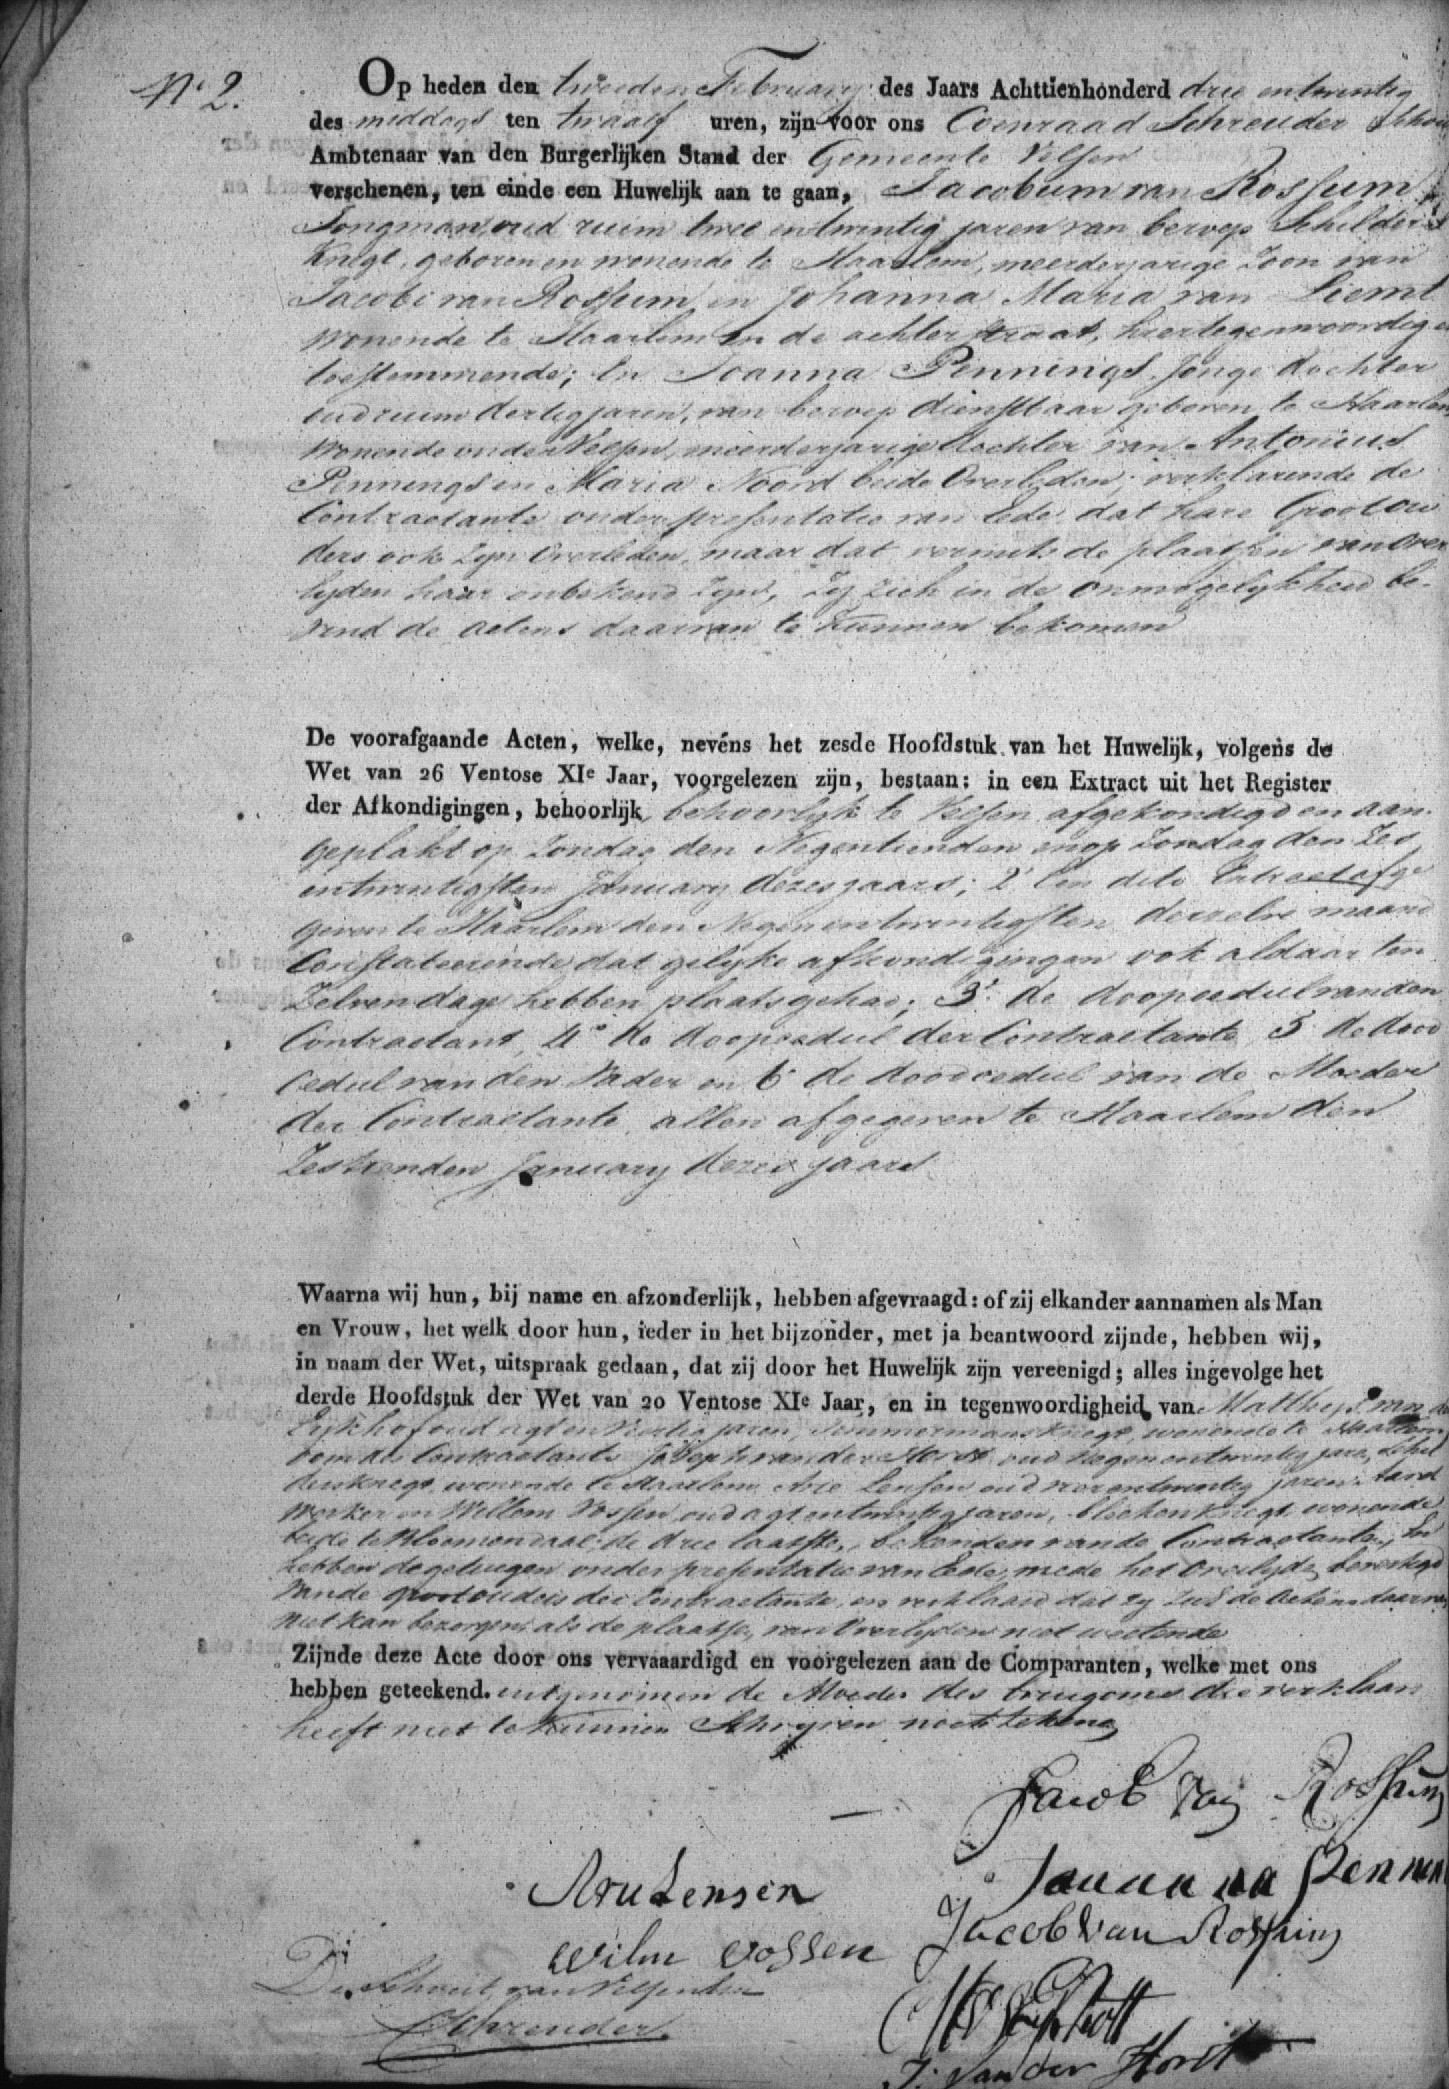 N.o 2.
Op heden den tweeden February des Jaars Achttienhonderd drie en twintig
des middags ten twaalf uren, zijn voor ons Coenraad Schreuder Schout
Ambtenaar van den Burgerlijken Stand der Gemeente Velsen
verschenen, ten einde een Huwelijk aan te gaan, Jacobum van Rossum
Jongman, oud ruim twee en twintig jaren van beroep Schilders
Knegt, geboren en wonende te Haarlem, meerderjarige Zoon van
Jacobi van Rossum en Johanna Maria van Liemt
wonende te Haarlem in de achterstraat, hiertegenwoordig en
toestemmende; En Joanna Pennings, Jonge dochter
oud ruim dertig jaren, van beroep dienstbaar geboren te Haarlem
wonende onder Velsen, meerderjarige dochter van Antonius
Pennings en Maria Noord beide Overleden; verklarende de
Contractante onder presentatie van Ede, dat hare Grootou
ders ook zyn Overleden, maar dat vermits de plaatsen van Over
lyden haar onbekend zyn, zy zich in de onmogelykheid be-
vind de actens daarvan te kunnen bekomen
De voorafgaande Acten, welke, nevéns het zesde Hoofdstuk van het Huwelijk, volgens de
Wet van 26 Ventose XIe Jaar, voorgelezen zijn, bestaan: in een Extract uit het Register
der Afkondigingen, behoorlijk behoorlyk te Velsen afgekondigd en aan
geplakt op Zondag den Negentienden en op Zondag den Zes
entwintigsten January dezes jaars; 2o Een dito Extract afge
geven te Haarlem den Negenentwintigsten derzelve maand
Constateerende, dat gelyke afkondigingen ook aldaar ten
Zelven dage hebben plaats gehad; 3o de doopcedul van den
Contractant, 4o de doopcedul der Contractante, 5 de dood
Cedul van den Vader en 6o de doodcedul van de Moeder
der Contractante, allen afgegeven te Haarlem den
Zestienden January dezes jaars
Waarna wij hun, bij name en afzonderlijk, hebben afgevraagd: of zij elkander aannamen als Man
en Vrouw, het welk door hun, ieder in het bijzonder, met ja beantwoord zijnde, hebben wij,
in naam der Wet, uitspraak gedaan, dat zij door het Huwelijk zijn vereenigd; alles ingevolge het
derde Hoofdstuk der Wet van 20 Ventose XIe Jaar, en in tegenwoordigheid van Matthys van
oud agt en Veertig jaren, Timmermans Knegt, wonende te Haarlem
oom der Contractante Joseph van der Horst oud Negenentwintig jaren, Schil
dersknegt wonende te Haarlem, Arie Lensen oud vierentwintig jaren Aard
Werker en Willem Vossen, oud agtentwintig jaren, bleekers knegt, wonende
beide te Bloemendaal, de drie laatste, bekenden van de Contractanten; En
hebben de getuigen onder presentatie van Ede, mede het Overlyden bevestigd
van de grootouders der Contractante, en verklaard dat zy de Actens daarvan
niet kan bezorgen, als de plaatse van Overlyden niet weetende
Zijnde deze Acte door ons vervaaardigd en voorgelezen aan de Comparanten, welke met ons
hebben geteekend. uitgenomen de Moeder des bruigoms die verklaard
heeft niet te kunnen Schryven noch tekenen
Jacob van Rossum
Arie Lensen
Joanna Pennin
Wilm Vossen
Jacob van Rossum
De Schout van Velsen
CSchreuder
J: van der Horst